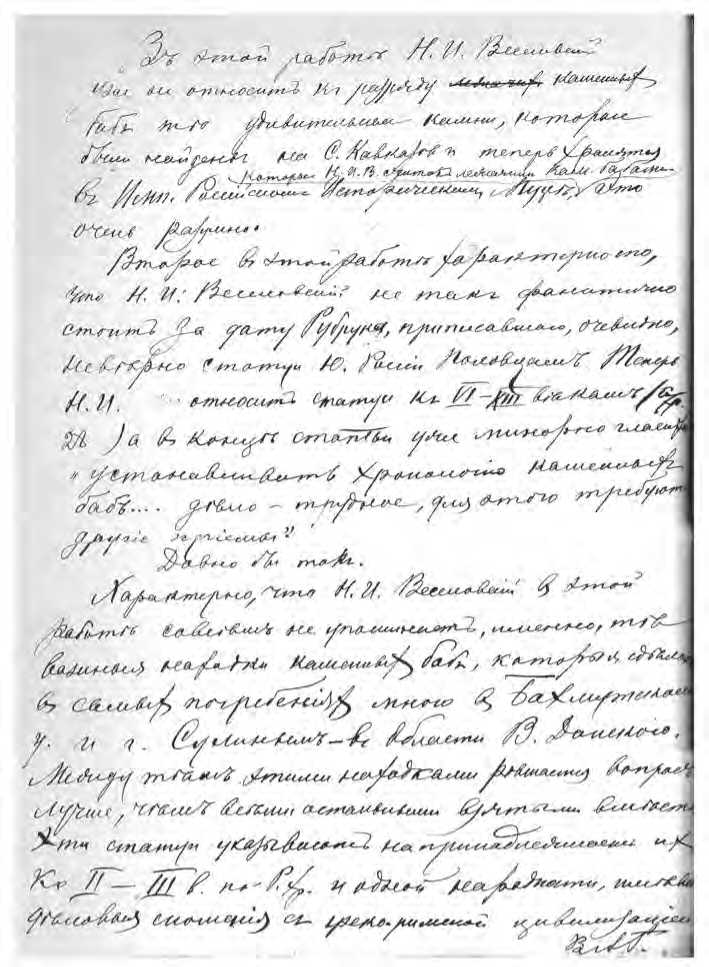 Въ этой работѣ Н. И. Веселовскій
не относитъ къ разряду каменныхъ
бабъ тѣ удивительные камни, которые
были найдены на С. Кавказѣ и теперь хранятся
которые Н. И. В. считаетъ кам. бабами
въ Имп. Россійскомъ Историческомъ Музеѣ, это
очень разумно.
Второе въ этой работѣ характерно то,
что Н. И. Веселовскій не такъ фанатично
стоитъ за дату Рубрука, приписавшаго, очевидно,
невѣрно статуи Ю. Росіи Половцамъ. Теперь
Н. И. относитъ статуи къ VI–XIII вѣкамъ (стр.
28) а въ концѣ статьи уже минорно гласитъ
„устанавливать хронологію каменныхъ
бабъ.... дѣло – трудное, для этого требуются
другіе пріемы"
Давно бы такъ.
Характерно, что Н. И. Веселовскій въ этой
работѣ совсѣмъ не упоминаетъ, именно, тѣ
важныя находки каменныхъ бабъ, которыя сдѣланы
въ самыхъ погребеніяхъ мною въ Бахмутскомъ
у. и г. Сулинымъ – въ Области В. Донского.
Между тѣмъ этими находками рѣшается вопросъ
лучше, чѣмъ всѣми остальными взятыми вмѣстѣ
Эти статуи указываютъ на принадлежность ихъ
ко II – III в. по Р. Хр. и одной народности, имѣвшей
дѣловыя сношенія съ греко-римской цивилизаціей
В. А. Г.